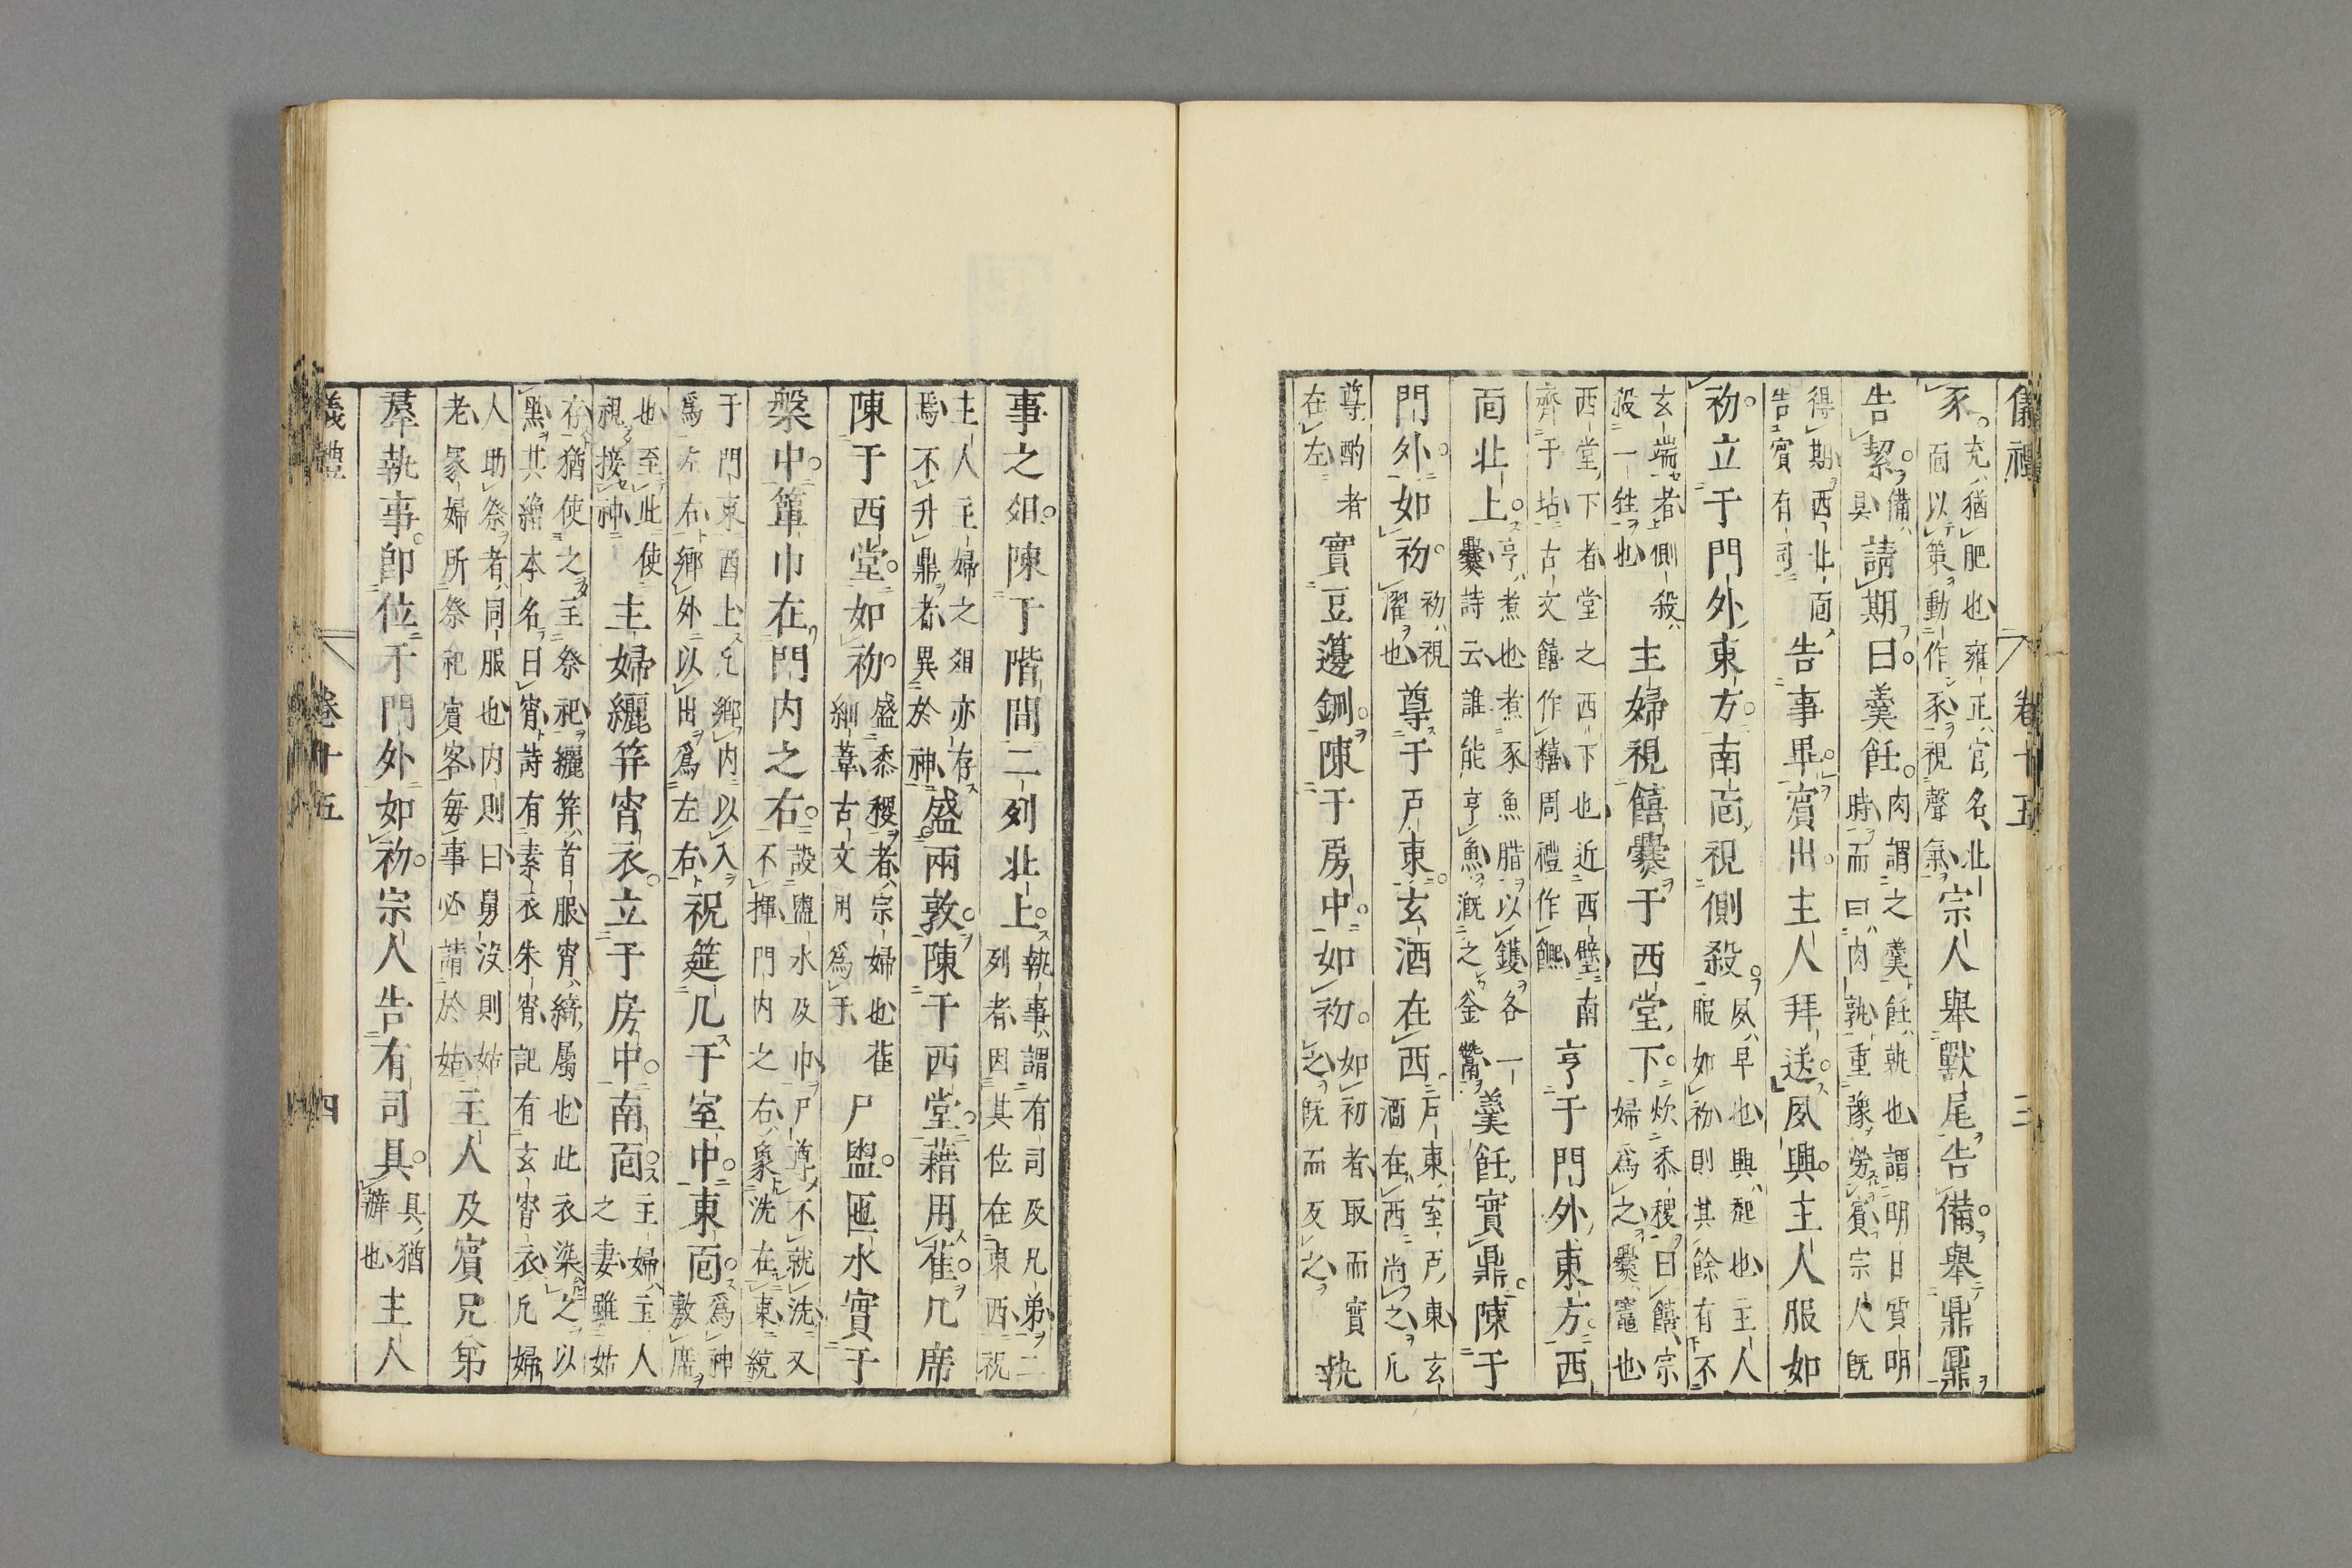 儀禮　卷十五　三
豕。充猶肥也雍正官名北
面以策動作豕視聲氣宗人舉獸尾告備。舉鼎鼏
告絜。備
具請期曰。羹飪。肉謂之羹飪孰也謂明日質明
時而曰肉孰重豫勞賓宗人既
得期西北面
告賓有司告事畢。賓出。主人拜送。夙興。主人服如
初。立于門外東方。南面視側殺。夙早也興起也主人
服如初則其餘有不
玄端者側殺
殺一牲也主婦視饎爨于西堂下。炊黍稷曰饎宗
婦爲之爨竈也
西堂下者堂之西下也近西壁南
齊于坫古文饎作糦周禮作𩟄亨于門外東方。西
面北上。亨煮也煮豕魚腊以鑊各一
爨詩云誰能亨魚漑之釜鬵羹飪實鼎。陳于
門外。如初。初視
濯也尊于戶東。玄酒在西。戶東室戶東玄
酒在西尚之凡
尊酌者
在左實豆籩鉶。陳于房中。如初。如初者取而實
之既而反之執
事之俎。陳于階間二列北上。執事謂有司及兄弟二
列者因其位在東西祝
主人主婦之俎亦存
焉不升鼎者異於神盛兩敦。陳于西堂。藉用萑。几席
陳于西堂。如初。盛黍稷者宗婦也萑
細葦古文用爲于尸盥。匜水實于
槃中。簞巾在門内之右。設盥水及巾尸尊不就洗又
不揮門内之右象洗在東統
于門東西上凡鄉内以入
爲左右鄉外以出爲左右祝筵几于室中。東面。爲神
敷席
也至此使
祝接神主婦纚笄宵衣。立于房中。南面。主婦主人
之妻雖姑
存猶使之主祭祀纚笄首服宵綺屬也此衣染之以
黑其繒本名曰宵詩有素衣朱宵記有玄宵衣凡婦
人助祭者同服也内則曰舅沒則姑
老冢婦所祭祀賓客每事必請於姑主人及賓兄弟
羣執事。即位于門外如初。宗人告有司具。具猶
辦也主人
儀禮　卷十五　四